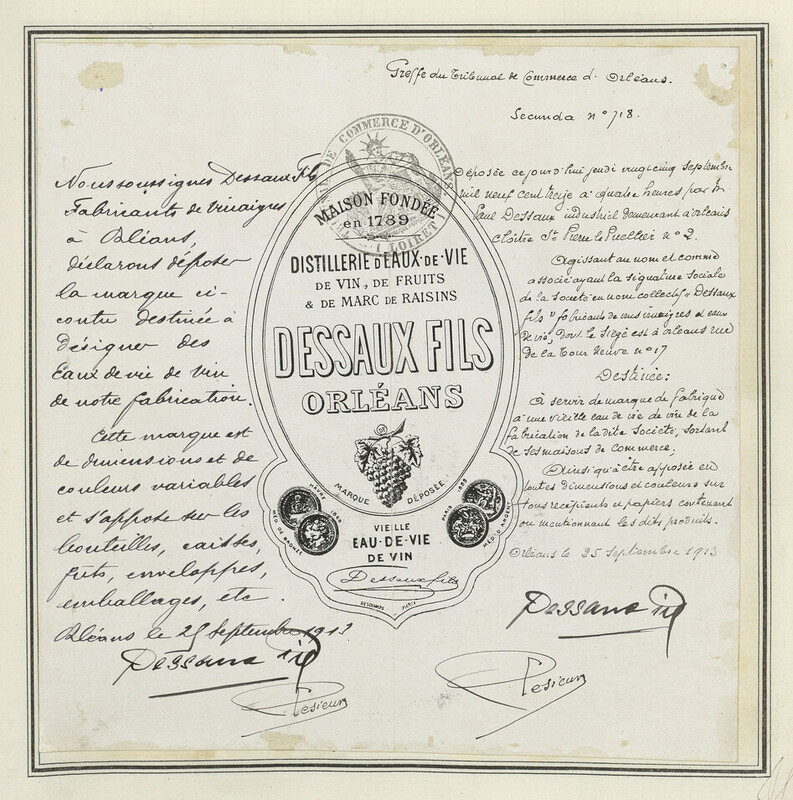 Greffe du Tribunal de Commerce d'Orléans.
Secunda n° 718.
Nous soussignés Dessaux Fils
Fabricants de Vinaigres
à Orléans,
déclarons déposer
la marque ci-
contre destinée à
désigner des
Eaux de vie de vin
de notre fabrication.
Cette marque est
de dimensions et de
couleurs variables
et s'appose sur les
bouteilles, caisses,
fûts, enveloppes,
emballages, etc
Orléans le 25 Septembre 1913
Dessaux fils
DE COMMERCE D'ORLÉANS
LOIRET
MAISON FONDÉE
en 1789
DISTILLERIE D'EAUX-DE-VIE
DE VIN, DE FRUITS
& DE MARC DE RAISINS
DESSAUX FILS
ORLÉANS
DF
MARQUE DÉPOSÉE
HAVRE 1868
MÉD. DE BRONZE
PARIS 1889
MÉD. D'ARGENT
VIEILLE
EAU-DE-VIE
DE VIN
Dessaux fils
PARIS
Déposée ce jourd'hui jeudi vingt cinq septembre
mil neuf cent treize à quatre heures par M.
Paul Dessaux industriel demeurant à Orléans
Cloître St Pierre le Puellier n° 2.
Agissant au nom et comme
associé ayant la signature sociale
de la Société en nom collectif "Dessaux
fils" fabricants de vins vinaigres et eaux
de vie, dont le siège est à Orléans rue
de la Tour Neuve n° 17
Destinée:
À servir de marque de fabrique
à une vieille eau de vie de vin de la
fabrication de la dite Société, sortant
de ses maisons de commerce;
Ainsi qu'à être apposée en
toutes dimensions et couleurs sur
tous récipients et papiers contenant
ou mentionnant les dits produits.
Orléans le 25 septembre 1913
Dessaux fils